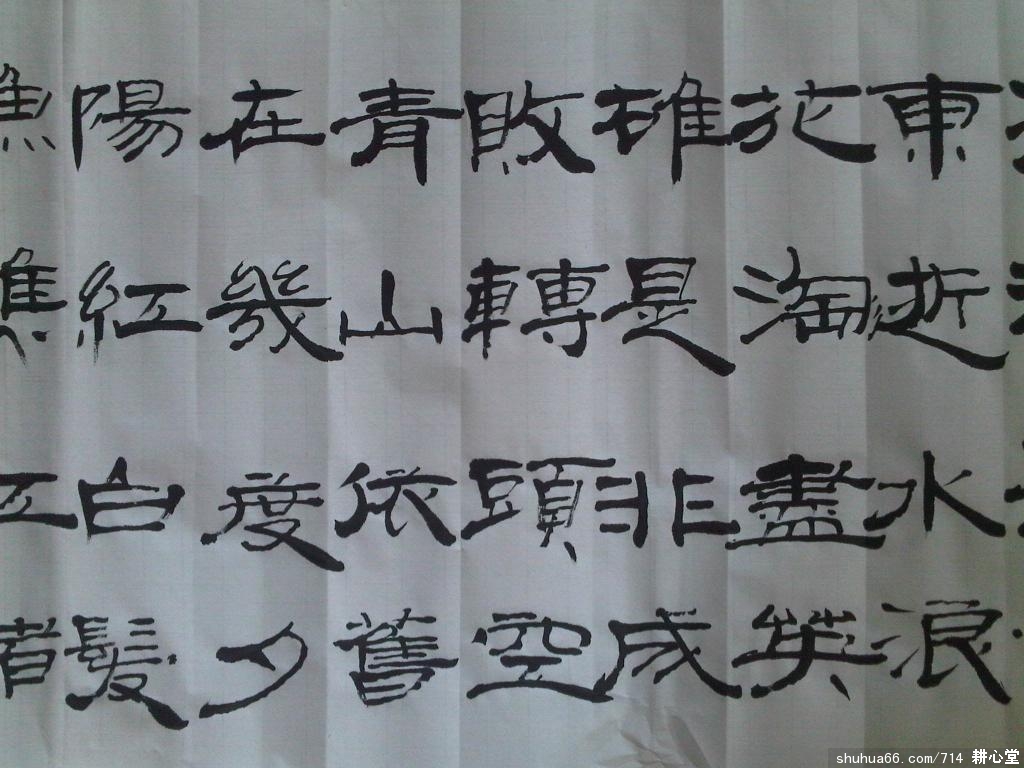 東逝水浪
花淘盡英
雄是非成
敗轉頭空
青山依舊
在幾度夕
陽紅白髮
shuhua66.com/714 耕心堂